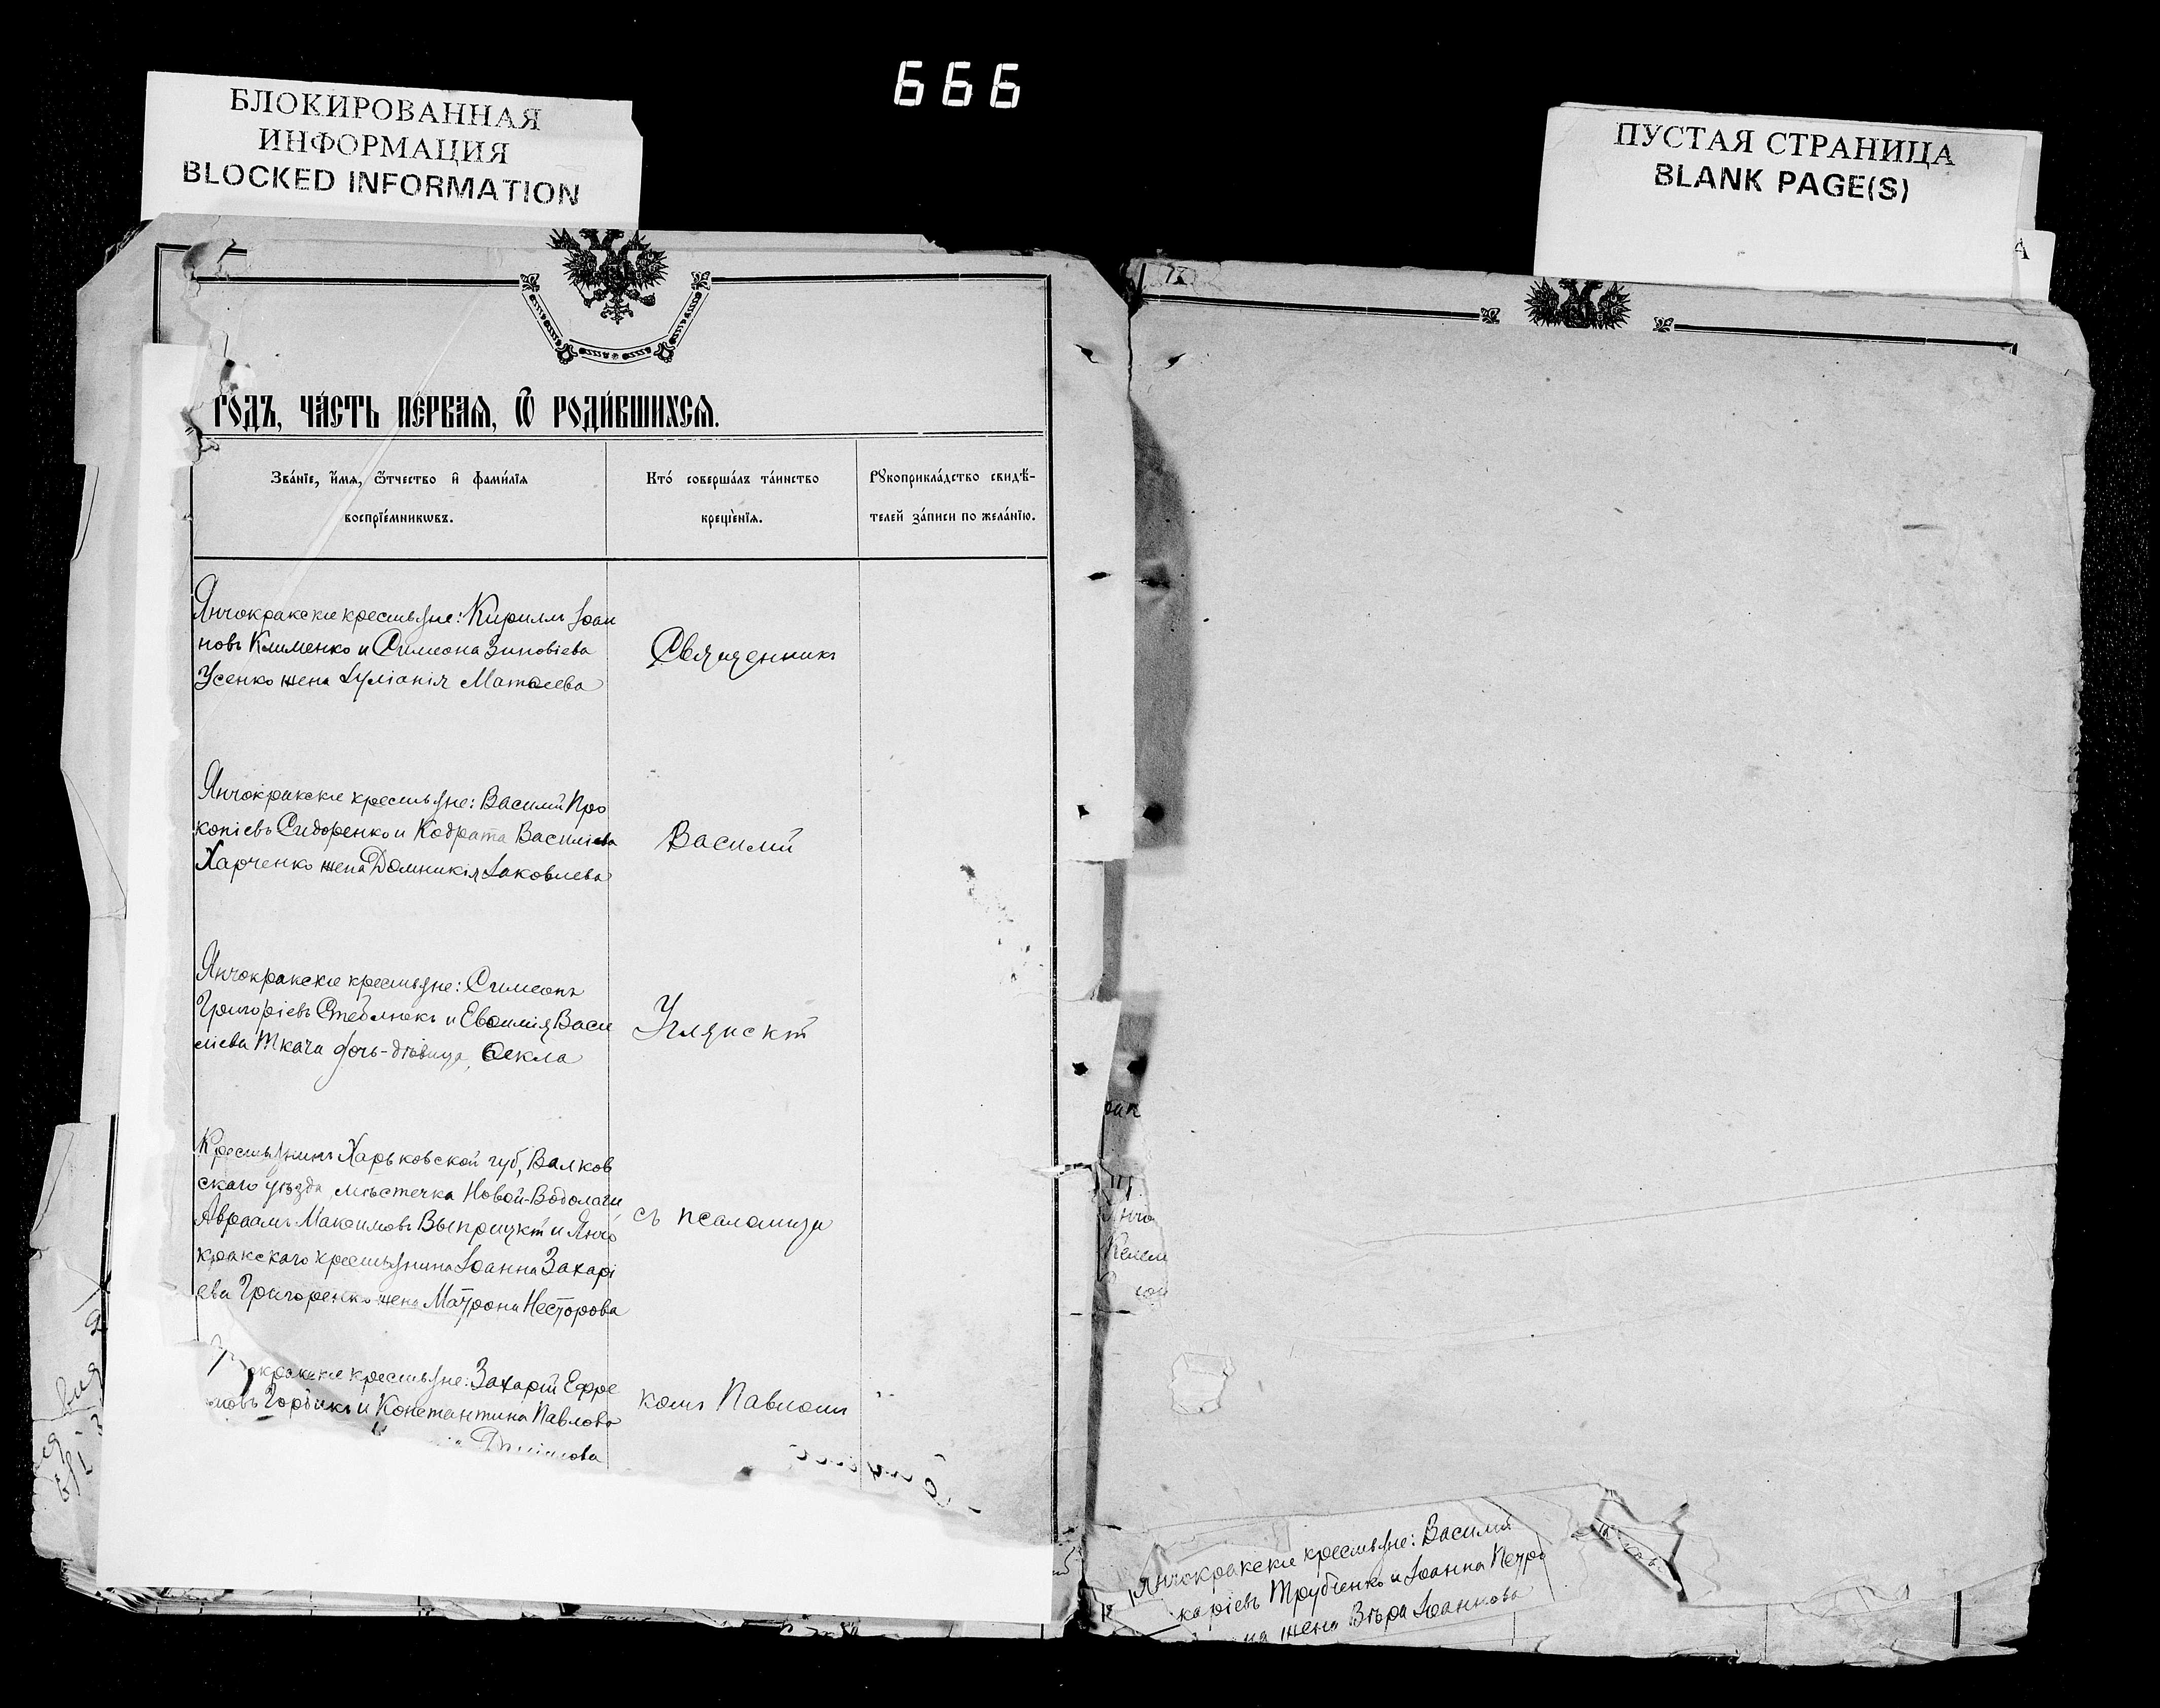 666
БЛОКИРОВАННАЯ
ИНФОРМАЦИЯ
BLOCKED INFORMATION
ПУСТАЯ СТРАНИЦА
BLANK PAGE(S)
А
го́дъ, ча́сть пе́рваѧ, ѿ роди́вшихсѧ.
Зва́нїе, и҆́мѧ, ѻ҆́тчество и҆ фами́лїѧ
воспрїе́мникѡвъ.
Кто̀ соверша́лъ та́инство
креще́нїѧ.
Рꙋкоприкла́дство свидѣ́-
телей за́писи по жела́нїю.
Янчокракскіе крестьяне: Кириллъ Іоан
новъ Клименко и Симеона Зиновіева
Усенко жена Іуліанія Матѳеева
Священникъ
Янчокракскіе крестьяне: Василій Про
копіевъ Сидоренко и Кодрата Василіева
Харченко жена Домникія Іаковлева
Василій
Янчокракскіе крестьяне: Симеонъ
Григоріевъ Стеблюкъ и Евѳимія Васи
ліева Ткача дочь-дѣвица, Ѳекла
Углянскій
Крестьянинъ Харьковской губ, Валков
скаго уѣзда, мѣстечка Новой-Водолаги
Авраамъ Максимовъ Выприцкій и Янчо
кракскаго крестьянина Іоанна Захарі
ева Григоренко жена Матрона Несторова
съ псаломщи
окракскіе крестьяне: Захарій Ефре
мовъ Горбикъ и Константина Павлова
комъ Павломъ
Янчокракскіе крестьяне: Василій
каріевъ Трубченко и Іоанна Петро
на жена Вѣра Іоаннова